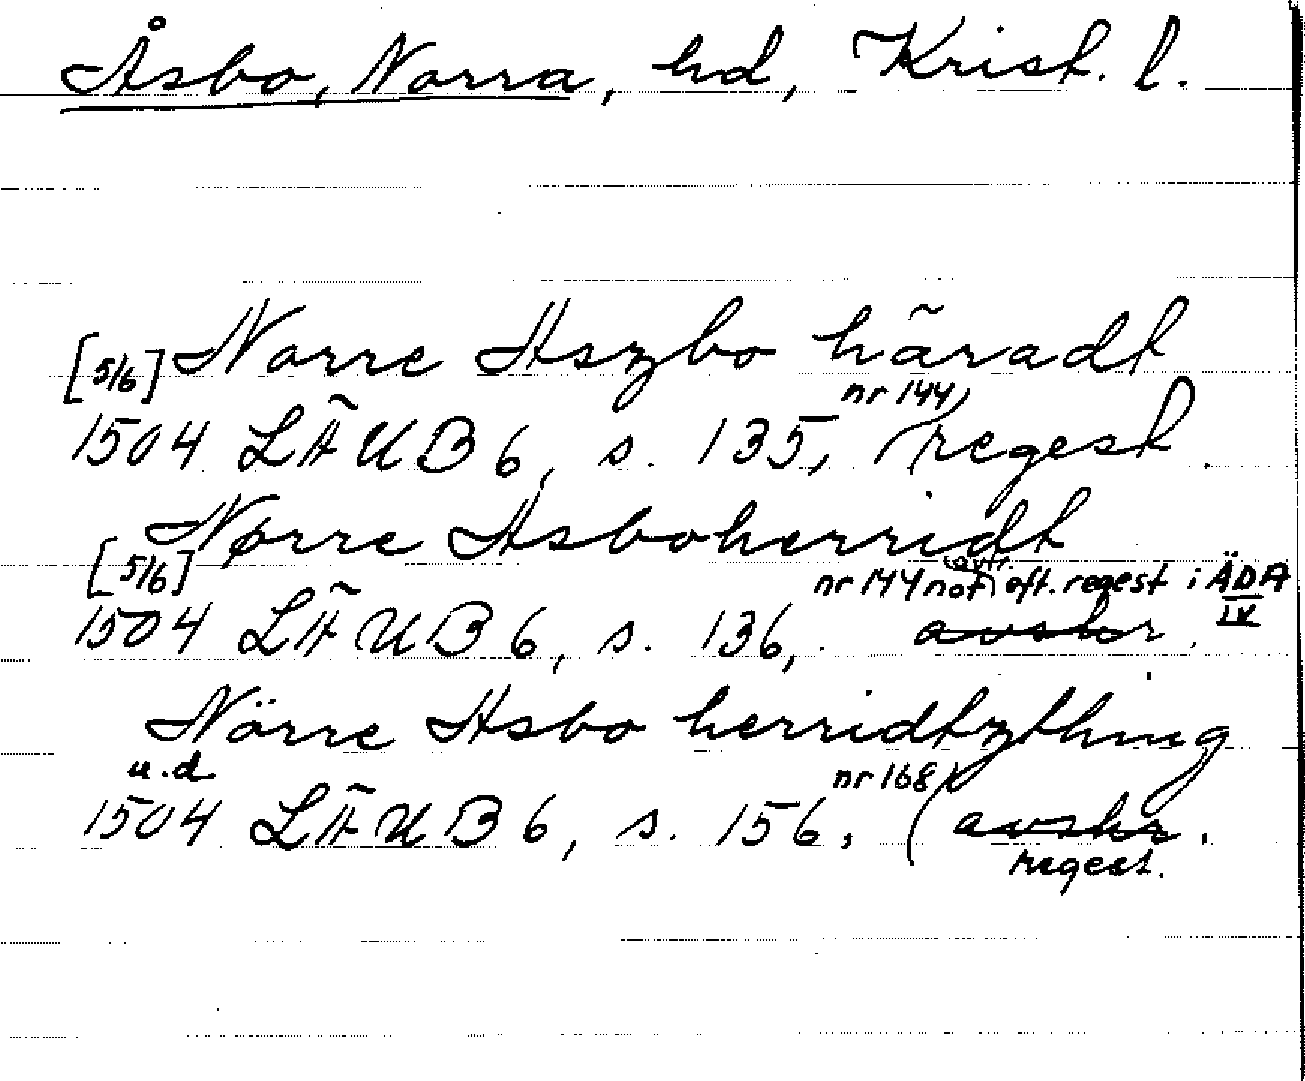 Åsbo, Norra, hd, Krist. l.
Norre Aszbo häradt
[5/6] nr 144,
1504 LÄUB 6, s. 135, regest.
Nørre Asboherridt
[5/6] nr 144 not (avtr. eft. regest i ÄDA IV
1504 LÄUB 6, s. 136, avskr.
Nörre Asbo herridtzthing
u.d nr 168
1504 LÄUB 6, s. 156, (avskr.
regest.